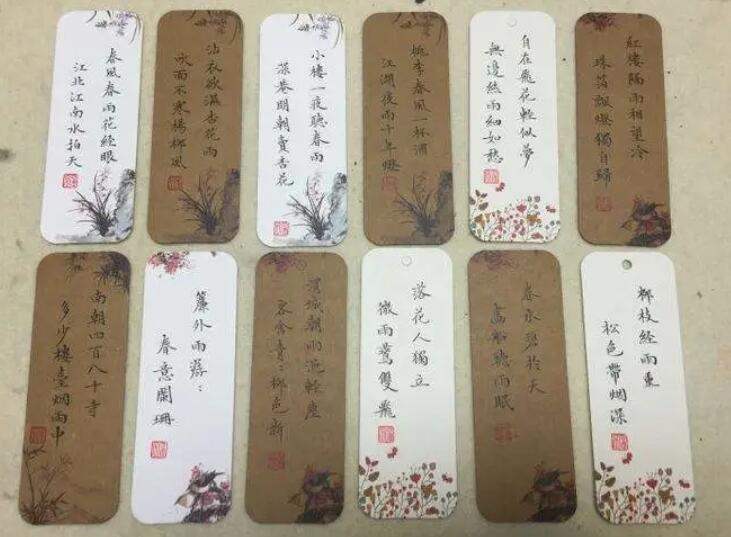 春風春雨花經眼
江北江南水拍天
沾衣欲濕杏花雨
吹面不寒楊柳風
小樓一夜聽春雨
深巷明朝賣杏花
桃李春風一杯酒
江湖夜雨十年燈
自在飛花輕似夢
無邊絲雨細如愁
紅樓隔雨相望冷
珠箔飄燈獨自歸
南朝四百八十寺
多少樓臺烟雨中
簾外雨潺：
春意闌珊
渭城朝雨浥輕塵
客舍青：柳色新
落花人獨立
微雨燕雙飛
春水碧於天
畫船聽雨眠
柳枝經雨重
松色帶烟深